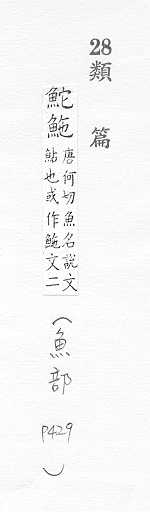 28類篇
鮀鮑唐何切魚名說文
鮎也或作鮑文二
(魚部 P429)